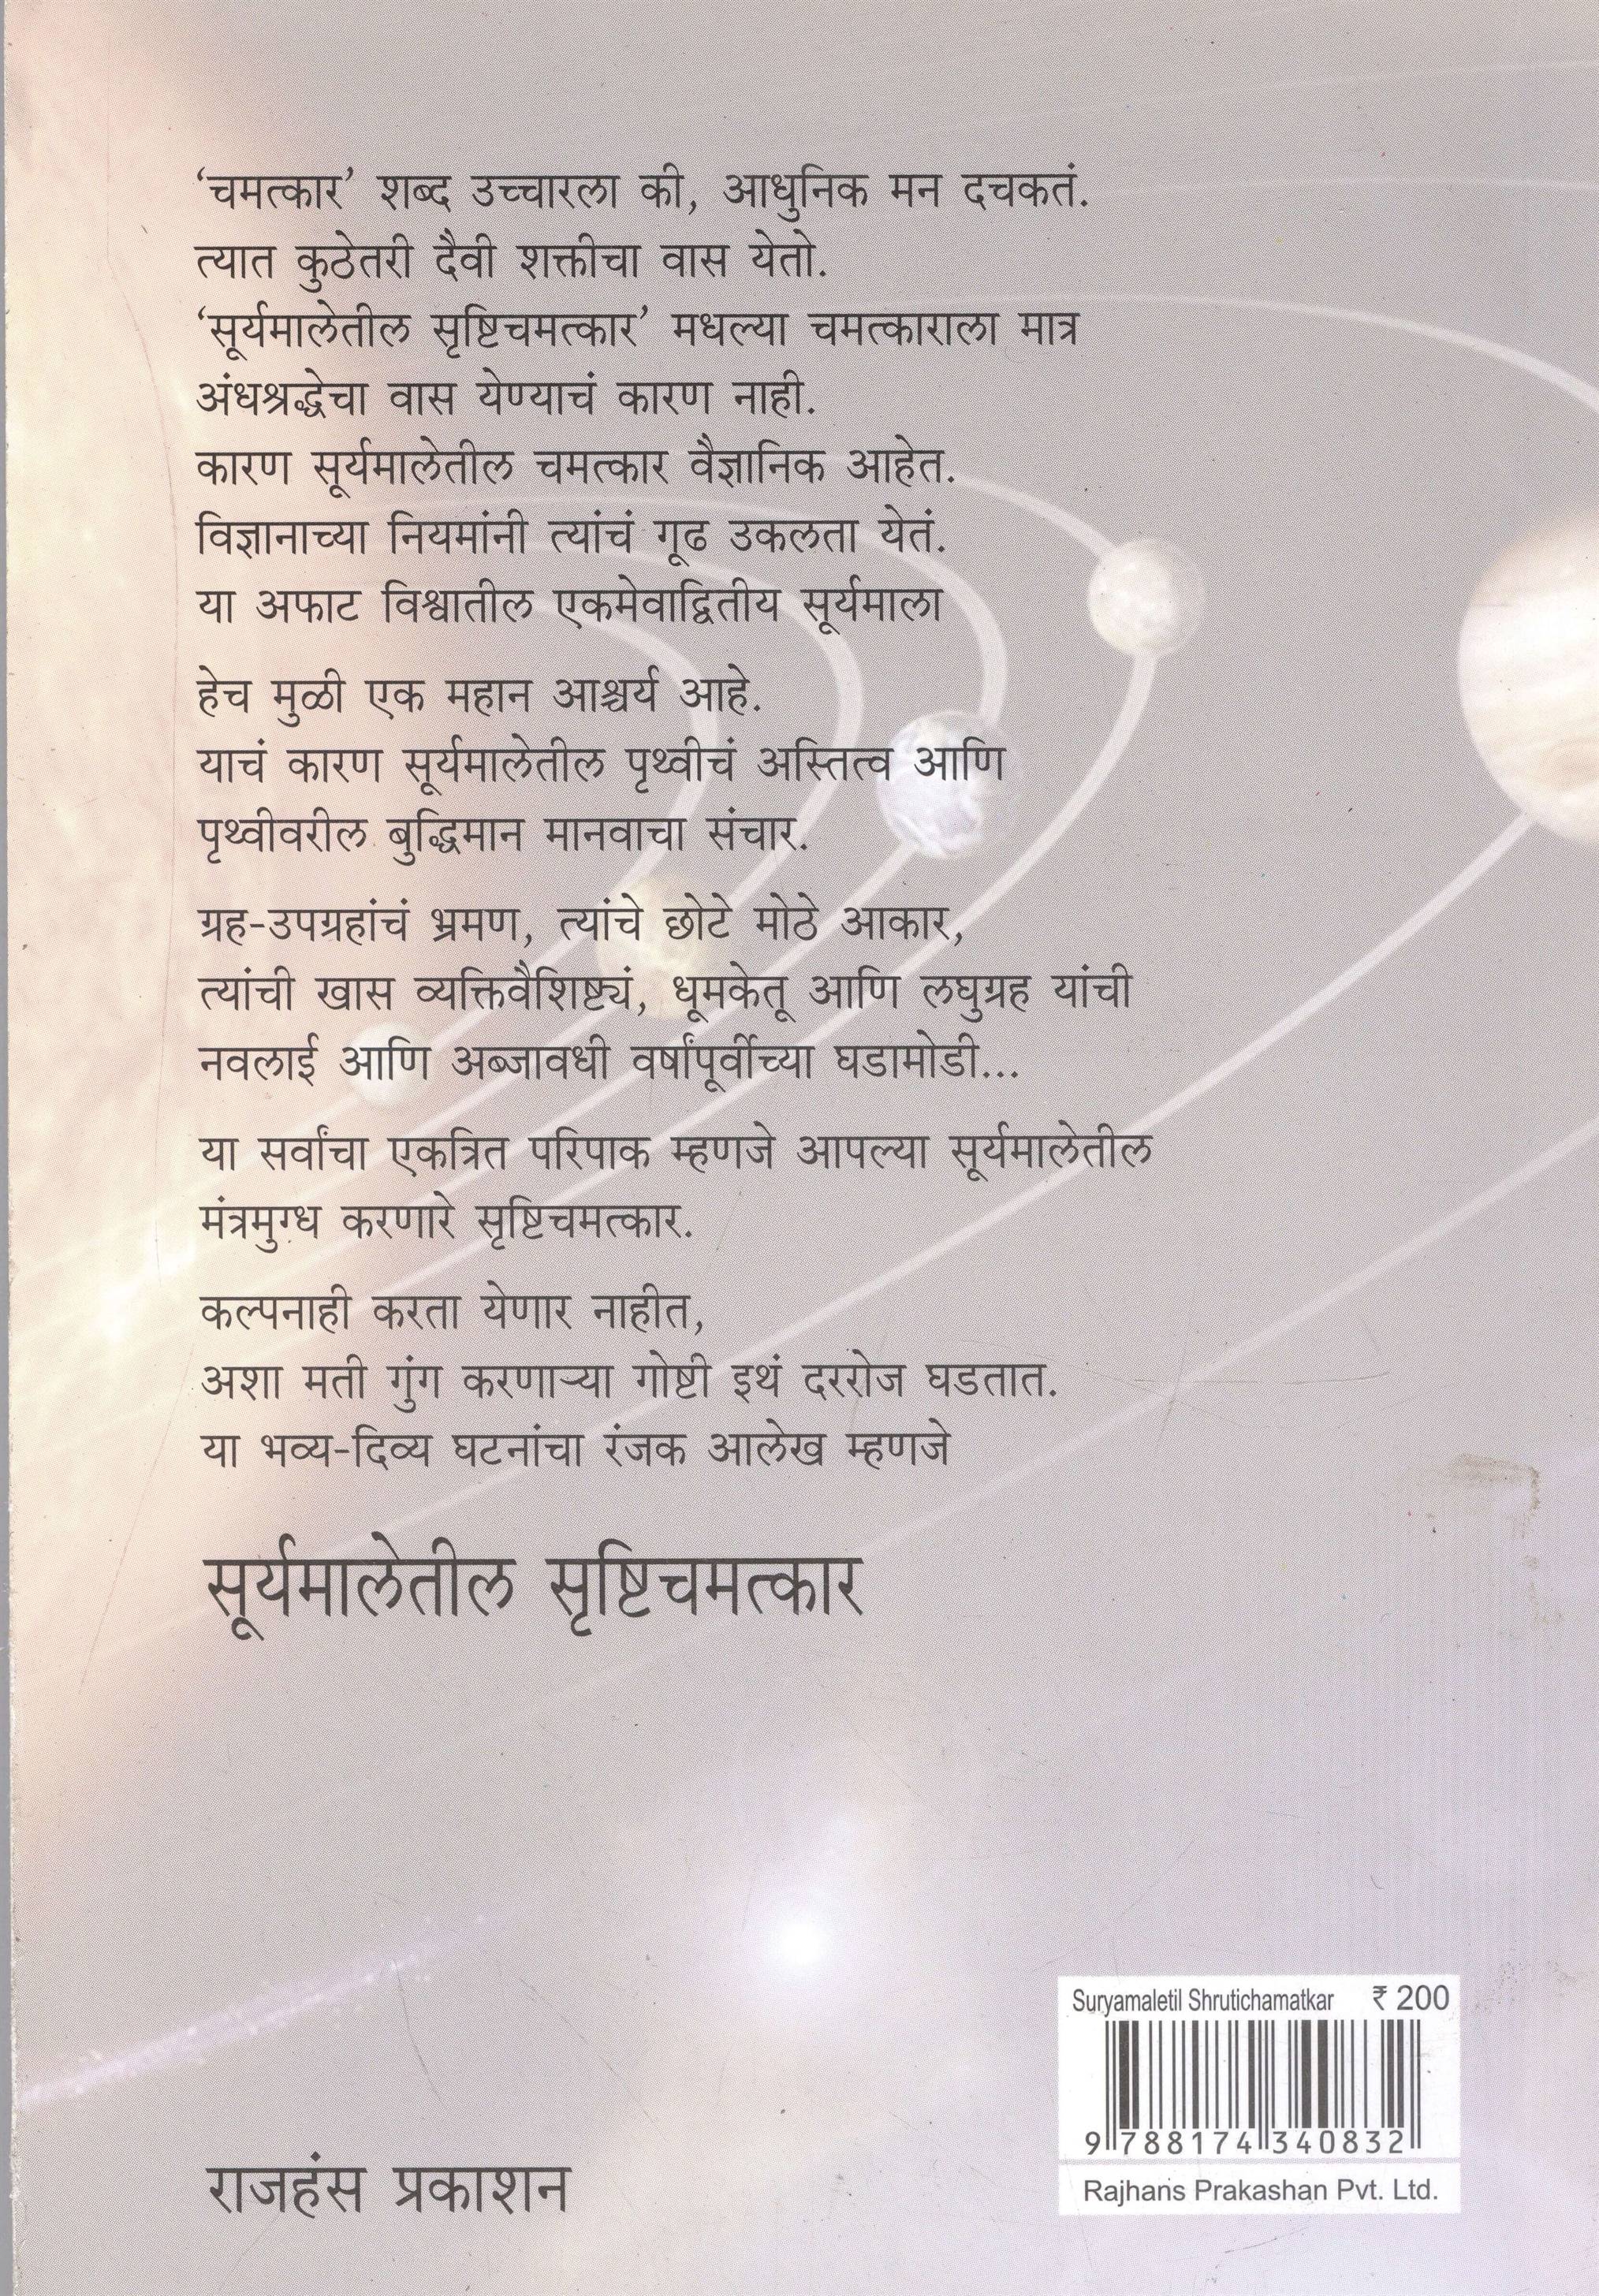 ‘चमत्कार’ शब्द उच्चारला की, आधुनिक मन दचकतं.
त्यात कुठेतरी दैवी शक्तीचा वास येतो.
‘सूर्यमालेतील सृष्टिचमत्कार’ मधल्या चमत्काराला मात्र
अंधश्रद्धेचा वास येण्याचं कारण नाही.
कारण सूर्यमालेतील चमत्कार वैज्ञानिक आहेत.
विज्ञानाच्या नियमांनी त्यांचं गूढ उकलता येतं.
या अफाट विश्वातील एकमेवाद्वितीय सूर्यमाला
हेच मुळी एक महान आश्चर्य आहे.
याचं कारण सूर्यमालेतील पृथ्वीचं अस्तित्व आणि
पृथ्वीवरील बुद्धिमान मानवाचा संचार.
ग्रह-उपग्रहांचं भ्रमण, त्यांचे छोटे मोठे आकार,
त्यांची खास व्यक्तिवैशिष्ट्यं, धूमकेतू आणि लघुग्रह यांची
नवलाई आणि अब्जावधी वर्षांपूर्वीच्या घडामोडी...
या सर्वांचा एकत्रित परिपाक म्हणजे आपल्या सूर्यमालेतील
मंत्रमुग्ध करणारे सृष्टिचमत्कार.
कल्पनाही करता येणार नाहीत,
अशा मती गुंग करणाऱ्या गोष्टी इथं दररोज घडतात.
या भव्य-दिव्य घटनांचा रंजक आलेख म्हणजे
सूर्यमालेतील सृष्टिचमत्कार
Suryamaletil Shrutichamatkar ₹ 200
9 788174 340832
Rajhans Prakashan Pvt. Ltd.
राजहंस प्रकाशन